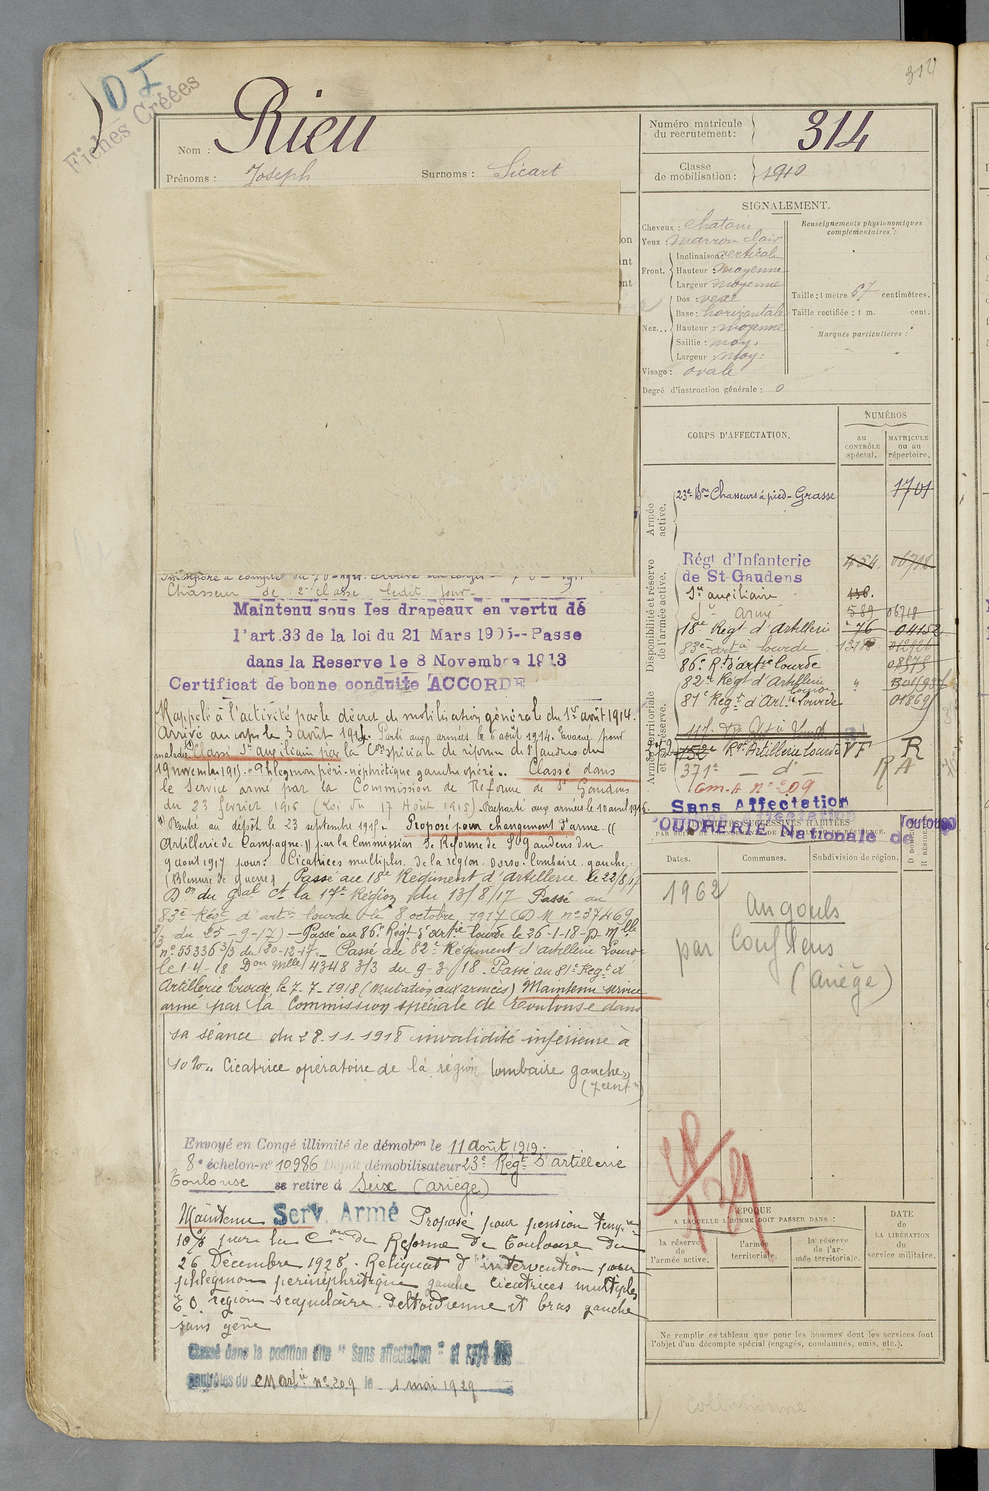 314
D I
Fiches Créées
Nom : Rieu
Prénoms : Joseph Surnoms : Sicart
Numéro matricule du recrutement : 314
Classe de mobilisation : 1910
SIGNALEMENT.
Cheveux : chatains
Yeux : Marron clair
Front. Inclinaison verticale
Hauteur : moyenne
Largeur moyenne
Nez... Dos : vexe
Base : horizontale
Hauteur : moyenne
Saillie : moy.
Largeur : moy.
Visage : ovale
Degré d'instruction générale : 0
Renseignements physionomiques complémentaires :
Taille : 1 mètre 67 centimètres.
Taille rectifiée : 1 m. cent.
Marques particulières :
CORPS D'AFFECTATION.
NUMÉROS
au CONTRÔLE spécial.
MATRICULE ou au répertoire.
Armée active.
23e Bon Chasseurs à pied - Grasse 1701
Disponibilité et réserve de l'armée active.
Régt d'Infanterie
de St Gaudens
Sre auxiliaire
Armé 589 06718
18e Régt d'Artillerie 76 04152
83e arte lourde
86e Rt d'artie lourde
82e Régt d'Artillerie
81e Régt d'Artie lourde 01869
Armée territoriale et sa réserve.
152e Rt Artillerie lourde VF R
371e — d° — R A
Cm. A n° 209
Sans Affectation
POUDRERIE Nationale de Toulouse
Dates. Communes. Subdivision de région.
1962 Angouls
par Couflens
(Ariège)
Chasseur de 2e classe ledit jour
Maintenu sous les drapeaux en vertu de
l'art. 33 de la loi du 21 Mars 1905-- Passe
dans la Reserve le 8 Novembre 1913
Certificat de bonne conduite ACCORDÉ
Rappelé à l'activité par le décret de mobilisation générale du 1er août 1914.
Arrivé au corps le 3 août 1914. Parti aux armées le 6 août 1914. Evacué pour
maladie Classé Sce auxiliaire par la Con spéciale de réforme de St Gaudens du
19 novembre 1915. Phlegmon péri-néphrétique gauche opéré.. Classé dans
le Service armé par la Commission de Réforme de St Gaudens
du 23 février 1916 (Loi du 17 Août 1915). Reparti aux armées le 10 avril 1916.
Rentré au dépôt le 23 septembre 1915. Proposé pour changement d'arme "
Artillerie de Campagne" par la Commission de Réforme de St Gaudens du
9 août 1917 pour : Cicatrices multiples de la région dorso-lombaire gauche.
(Blessure de guerre) Passé au 18e Régiment d'Artillerie le 22/8/17
Don du Gal Ct la 17e Région du 13/8/17 Passé au
83e Régt d'arte lourde le 8 octobre 1917 (D.M n° 37469
3/3 du 25-9-17) - Passé au 86e Régt d'artie lourde le 26-1-18
n° 55336 3/3 du 20-12-17. - Passé au 82e Régiment d'artillerie Lourde
le 1-4-18 Don Mlle 4348 3/3 du 9-3-18. Passé au 81e Régt d'
Artillerie lourde le 7-7-1918 (Mutation aux armées) Maintenu service
armé par la Commission spéciale de Toulouse dans
sa séance du 28.11.1918 invalidité inférieure à
10 %.. Cicatrice opératoire de la région lombaire gauche"
(7 cent.)
Envoyé en Congé illimité de démobon le 11 août 1919.
8e échelon - n° 10986 Dépôt démobilisateur 23e Régt d'artillerie
Toulouse se retire à Seix (Ariège)
Maintenu Serv. Armé Proposé pour pension temp.
10 % par la Con de Réforme de Toulouse du
26 Décembre 1928. Reliquat d'intervention pour
phlegmon périnéphrétique gauche cicatrices multiples
région scapulaire. deltoïdienne et bras gauche
sans gêne
Classé dans la position dite "Sans affectation" et rayé des
contrôles du CM Artie n° 209 le 1 mai 1929
ÉPOQUE
A LAQUELLE L'HOMME DOIT PASSER DANS :
la réserve de l'armée active.
l'armée territoriale.
la réserve de l'armée territoriale.
DATE de LA LIBÉRATION du service militaire.
Ne remplir ce tableau que pour les hommes dont les services font
l'objet d'un décompte spécial (engagés, condamnés, omis, etc.).